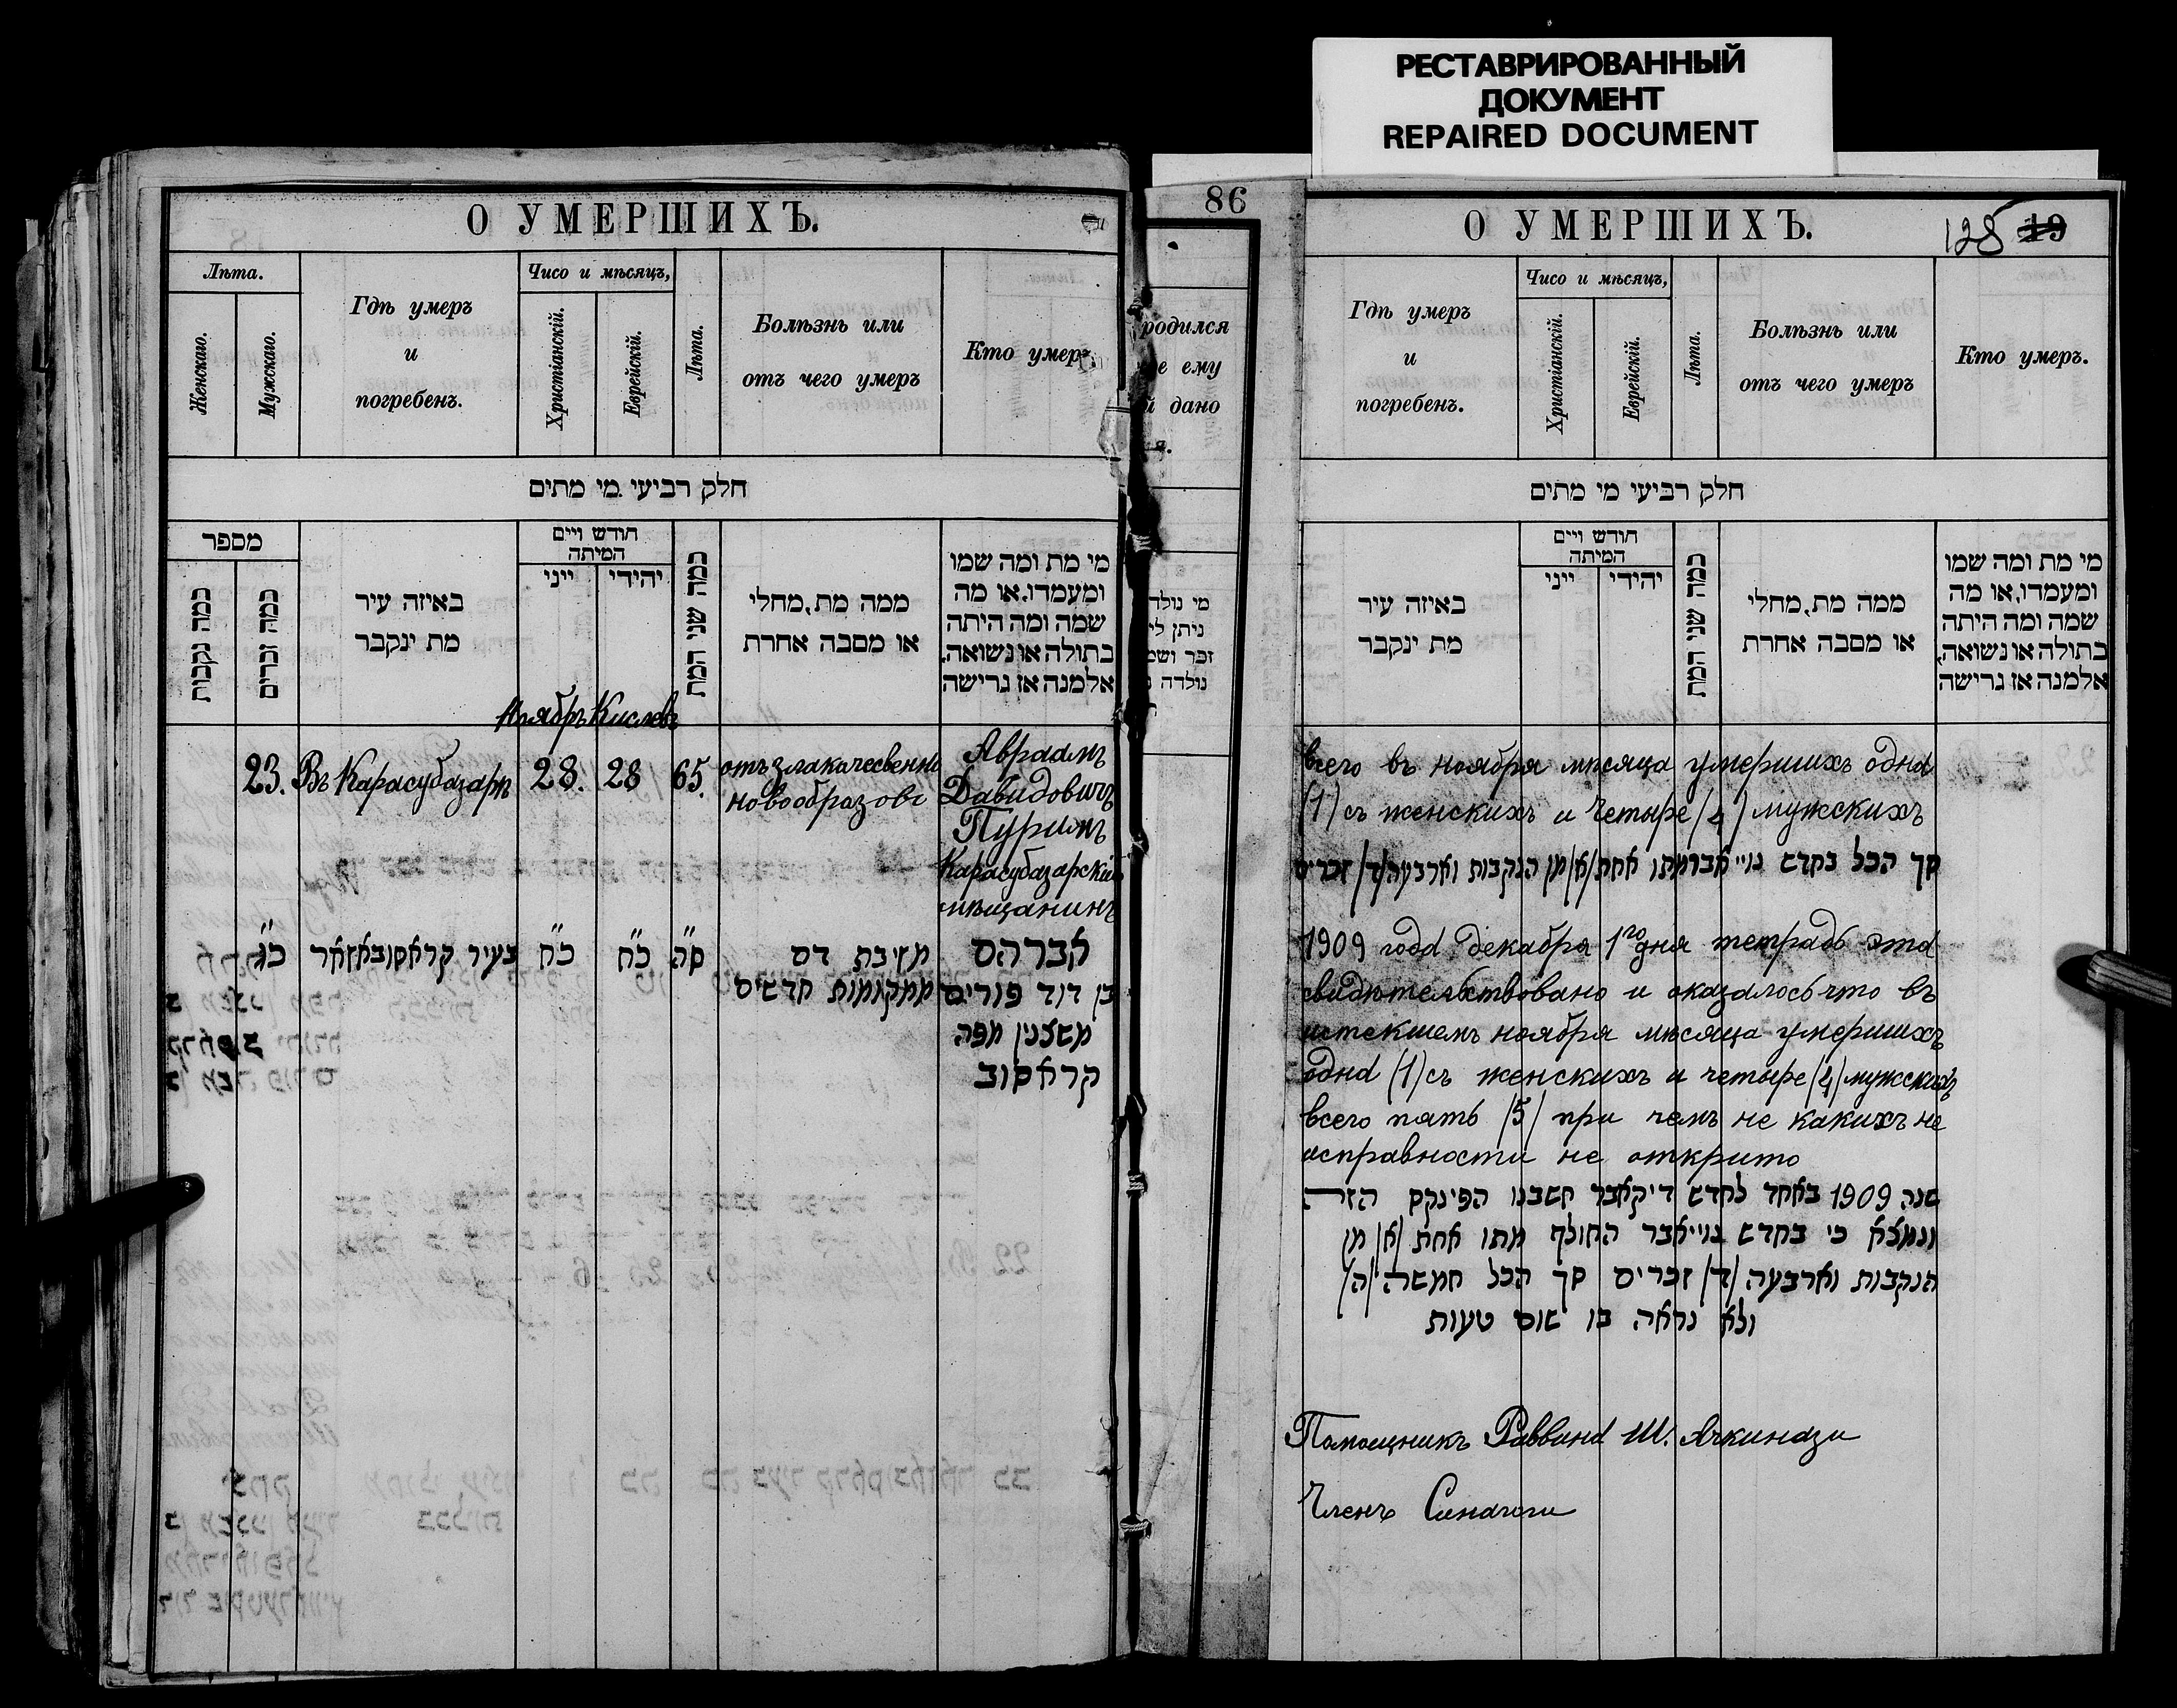 РЕСТАВРИРОВАННЫЙ
ДОКУМЕНТ
REPAIRED DOCUMENT
О УМЕРШИХЪ.
Лѣта.
Женскаго.
Мужскаго.
Гдѣ умеръ
и
погребенъ.
Чисо и мѣсяцъ,
Христіанскій.
Еврейскій.
Лѣта.
Болѣзнь или
отъ чего умеръ
Кто умеръ.
חלק רביעי מי מתים
מספר
כמה נקבות
כמה זכרים
באיזה עיר
מת ינקבר
חודש ויים
המיתה
ייני
יהידי
כמה שני המת
ממה מת, מחלי
או מסבה אחרת
מי מת ומה שמו
ומעמדו, או מה
שמה ומה היתה
בתולה או נשואה,
אלמנה אז גרישה
Ноябръ Кислевъ
23. Въ Карасубазарѣ 28. 28 65.
отъ злакачесвенно
новообразова
Авраамъ
Давидовичъ
Пуримъ
Карасубазарскій
мѣщанинъ
כ״ג בעיר קראסובאזאר כ״ח כ״ח ס״ה
מזיבת דם
ממקומות חדשים
אברהם
בן דוד פורים
משצנין מפה
קראסוב
86
родился
ему
й дано
я.
מי נולד
ניתן לי
זכר ושמ
נולדה
О УМЕРШИХЪ.
128 19
Гдѣ умеръ
и
погребенъ.
Чисо и мѣсяцъ,
Христіанскій.
Еврейскій.
Лѣта.
Болѣзнь или
отъ чего умеръ
Кто умеръ.
חלק רביעי מי מתים
באיזה עיר
מת ינקבר
חודש ויים
המיתה
ייני
יהידי
כמה שני המת
ממה מת, מחלי
או מסבה אחרת
מי מת ומה שמו
ומעמדו, או מה
שמה ומה היתה
בתולה או נשואה,
אלמנה אז גרישה
всего въ ноября мѣсяца умершихъ одна
(1) съ женскихъ и четыре (4) мужскихъ
סך הכל בחדש נוייאבר מתו אחת /א/ מן הנקבות וארבעה /ד/ זכרים
1909 года декабря 1го дня тетрадь эта
свидѣтельствовано и оказалось что въ
истекшемъ ноября мѣсяца умершихъ
одна (1) съ женскихъ и четыре (4) мужскихъ
всего пять (5) при чемъ не какихъ не
исправности не открито
שנה 1909 באחד לחדש דיקאבר חשבנו הפינקס הזה
ונמצא כי בחדש נוייאבר החולף מתו אחת /א/ מן
הנקבות וארבעה /ד/ זכרים סך הכל חמשה /ה/
ולא נראה בו שום טעות
Помощникъ Раввина Ш. Ачкинази
Членъ Синагоги